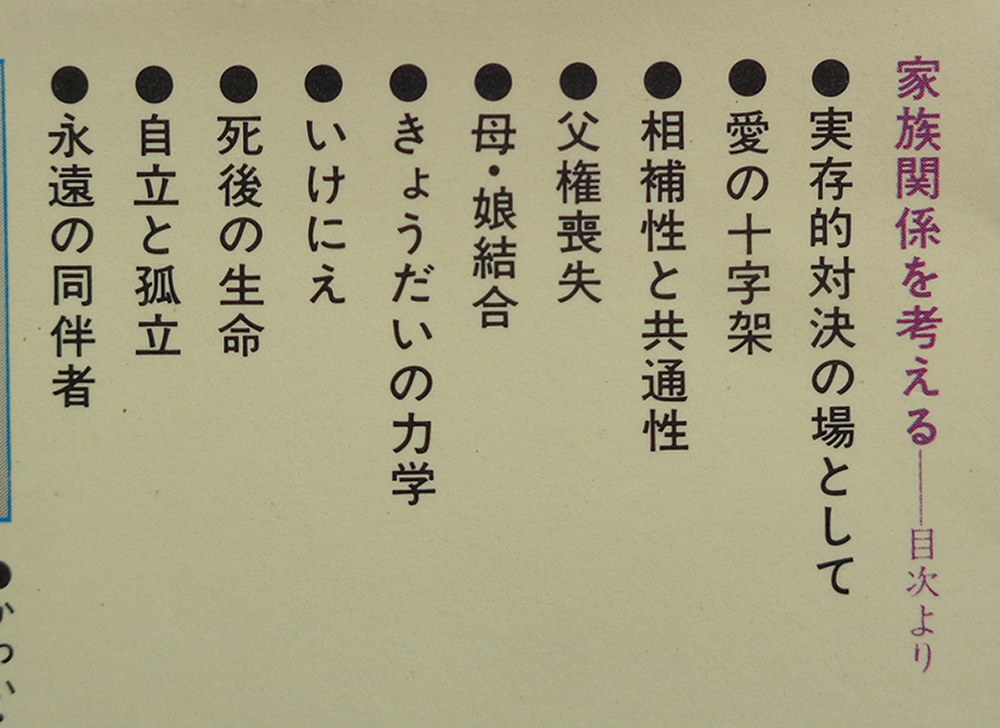 家族関係を考える——目次より
●実存的対決の場として
●愛の十字架
●相補性と共通性
●父権喪失
●母・娘結合
●きょうだいの力学
●いけにえ
●死後の生命
●自立と孤立
●永遠の同伴者
●かわい